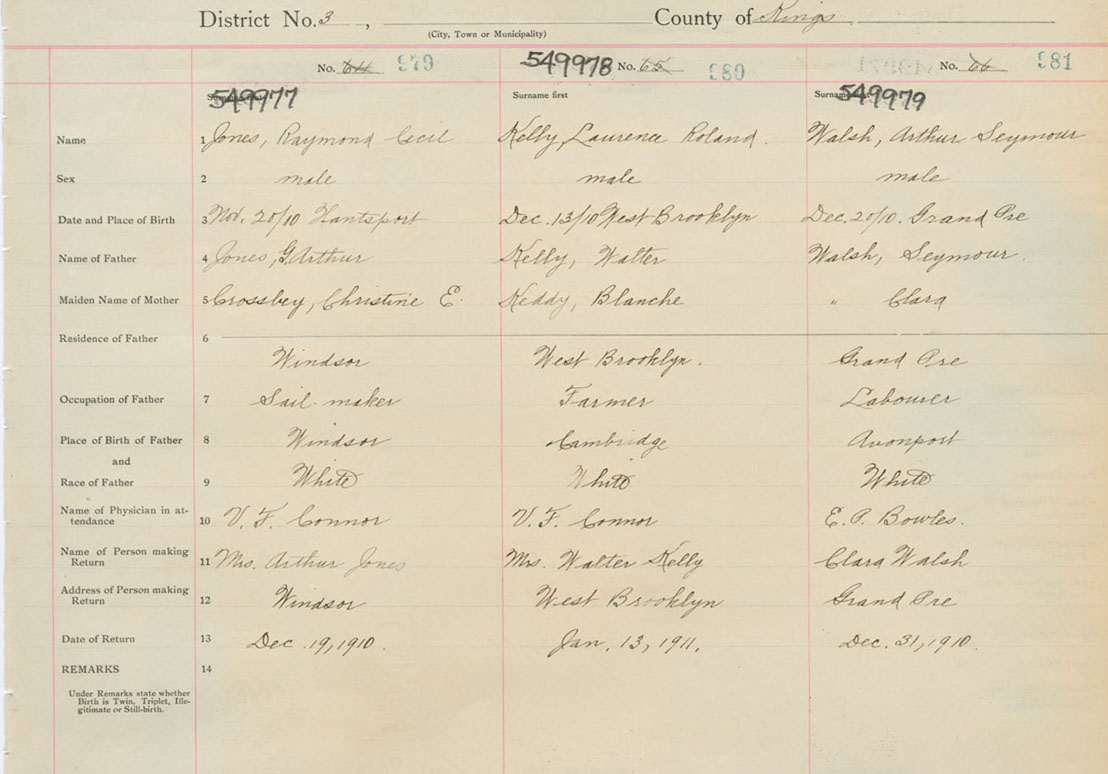 District No. 3 , County of Kings
(City, Town or Municipality)
No. 64 979 549978 No. 65 980 No. 66 981
549977 Surname first 549979
Name 1 Jones, Raymond Cecil Kelly, Laurence Roland. Walsh, Arthur Seymour
Sex 2 male male male
Date and Place of Birth 3 Nov. 20/10 Hantsport Dec. 13/10 West Brooklyn Dec. 20/10. Grand Pre
Name of Father 4 Jones, G. Arthur Kelly, Walter Walsh, Seymour.
Maiden Name of Mother 5 Crossbey, Christine E. Keddy, Blanche " Clara
Residence of Father 6
Windsor West Brooklyn. Grand Pre
Occupation of Father 7 Sail maker Farmer Labourer
Place of Birth of Father 8 Windsor Cambridge Avonport
and
Race of Father 9 White White White
Name of Physician in at-
tendance 10 V. F. Connor V. F. Connor E. P. Bowles.
Name of Person making
Return 11 Mrs. Arthur Jones Mrs. Walter Kelly Clara Walsh
Address of Person making
Return 12 Windsor West Brooklyn Grand Pre
Date of Return 13 Dec. 19, 1910. Jan. 13, 1911. Dec. 31, 1910.
REMARKS 14
Under Remarks state whether
Birth is Twin, Triplet, Ille-
gitimate or Still-birth.